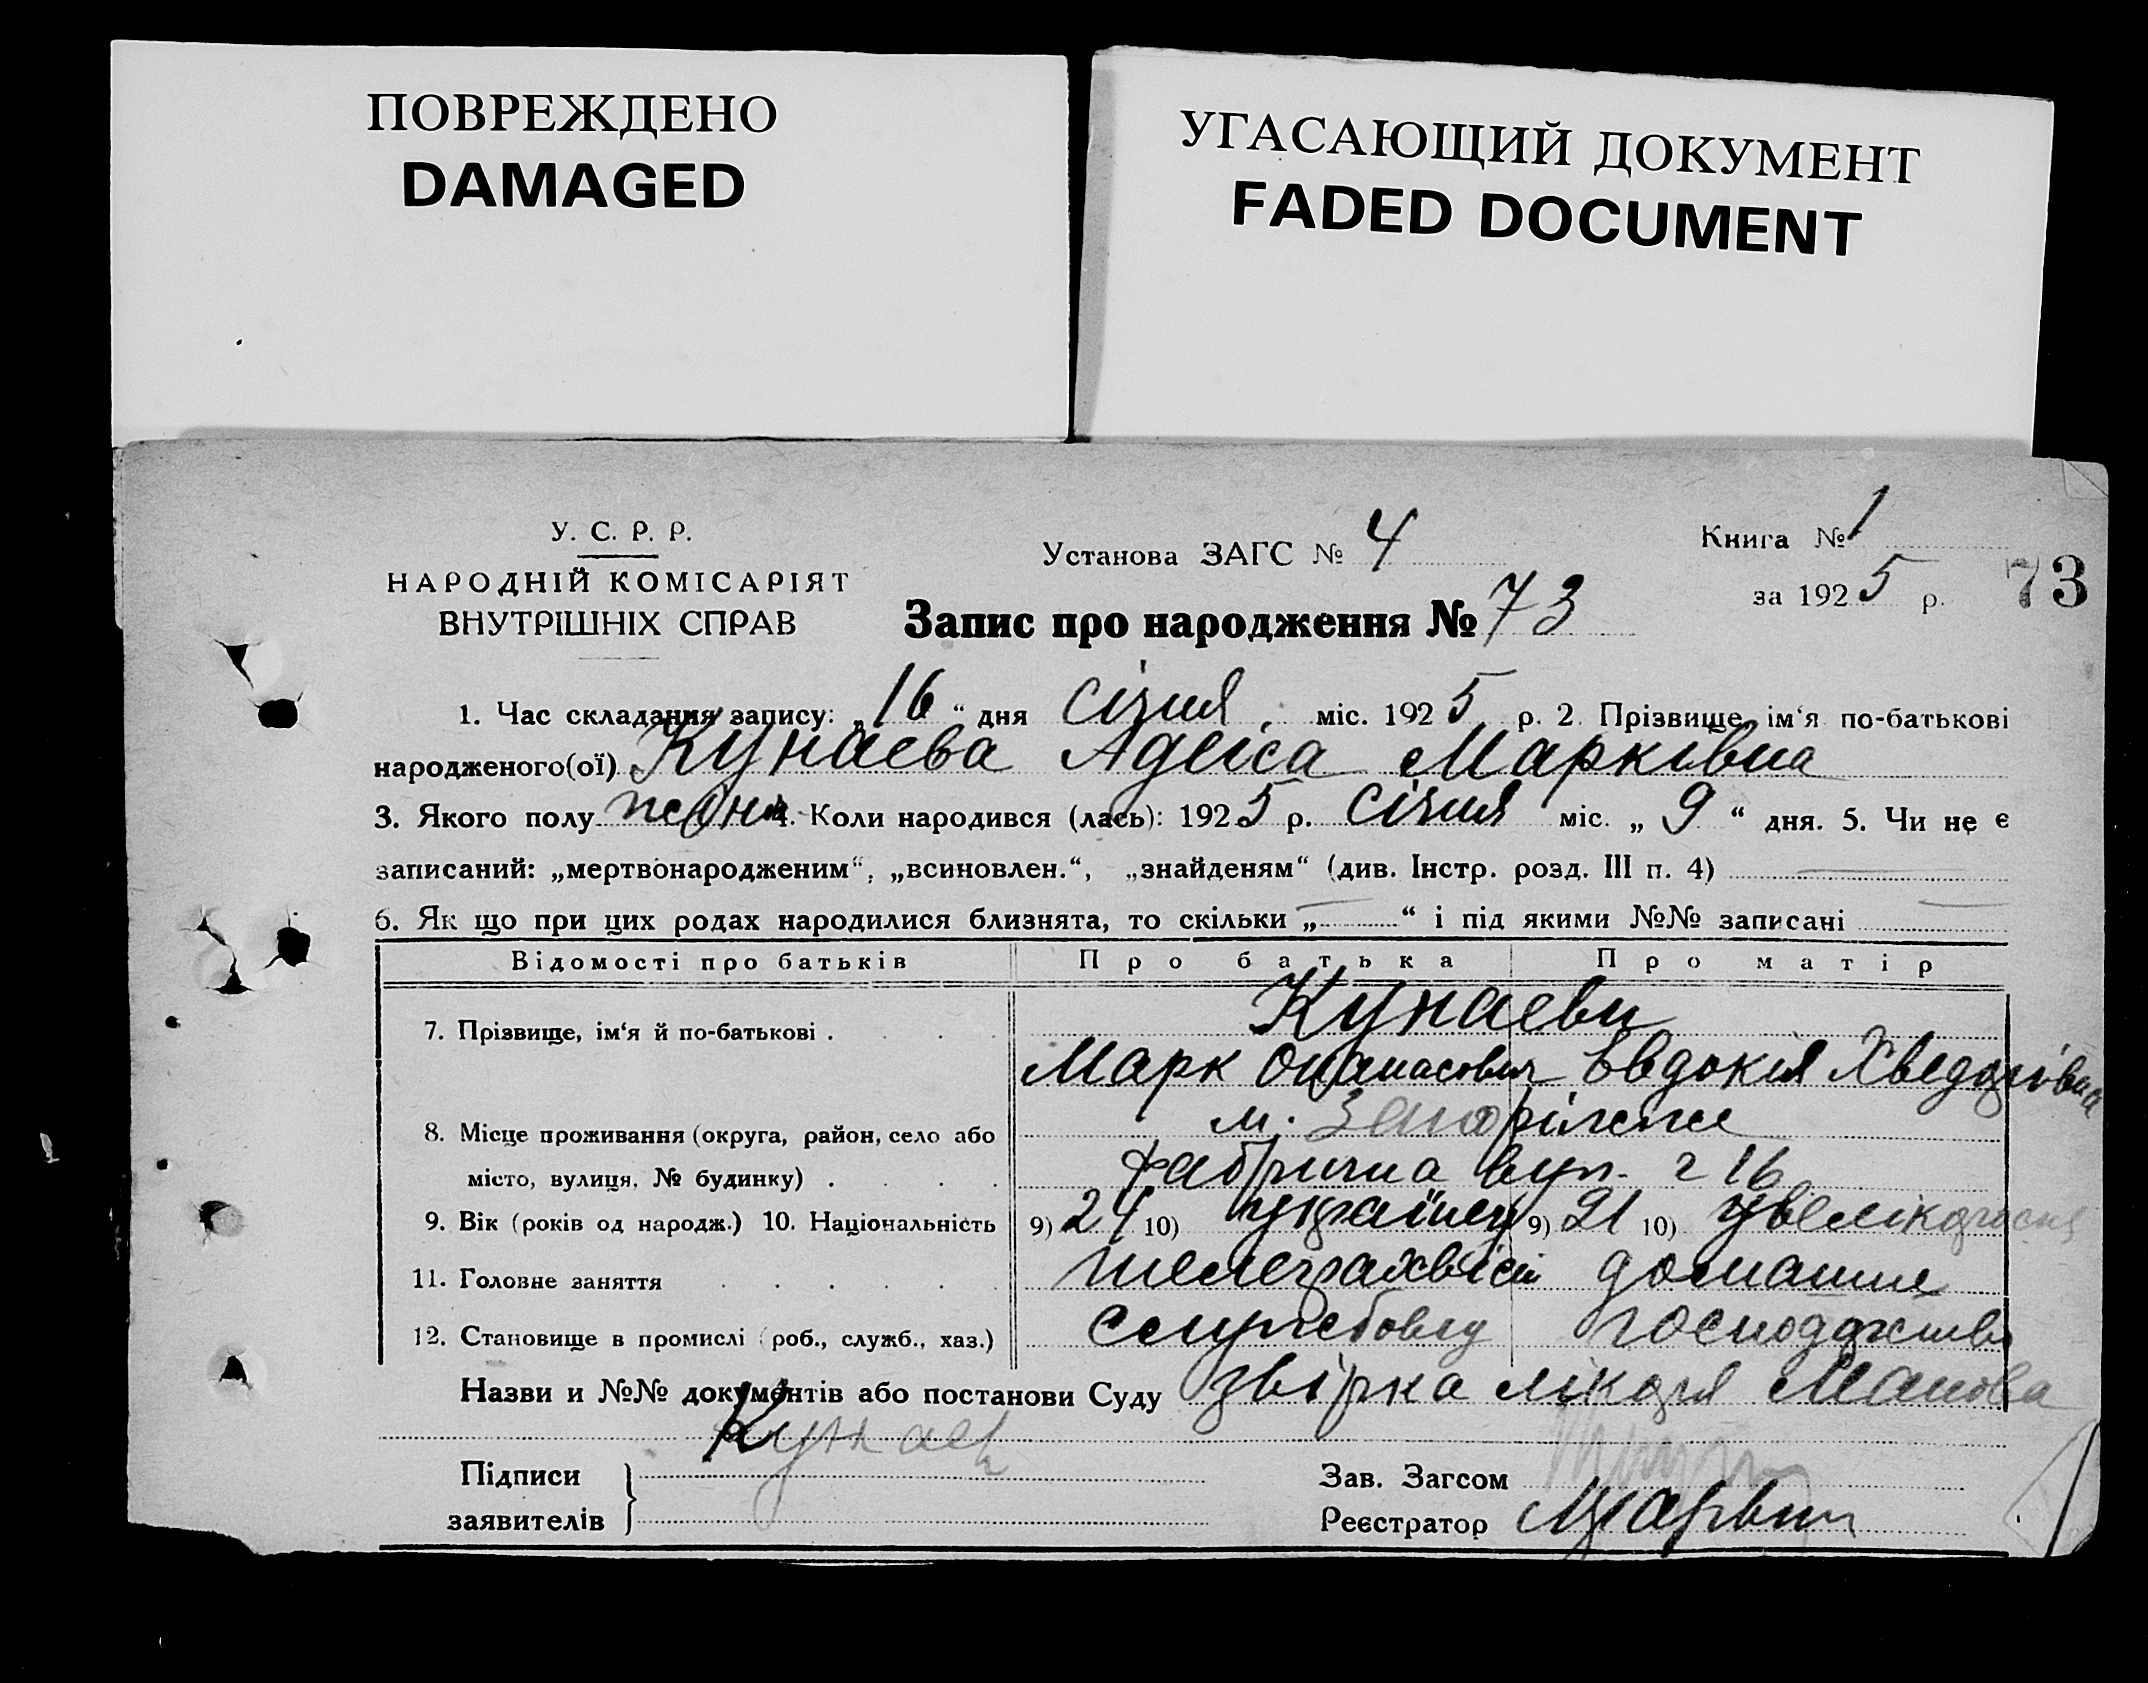 ПОВРЕЖДЕНО
DAMAGED
УГАСАЮЩИЙ ДОКУМЕНТ
FADED DOCUMENT
У. С. Р. Р.
НАРОДНІЙ КОМІСАРІЯТ
ВНУТРІШНІХ СПРАВ
Установа ЗАГС № 4
Книга № 1
за 1925 р.
73
Запис про народження № 73
1. Час складання запису: „16“ дня Січня міс. 1925 р. 2. Прізвище, ім‘я по-батькові
народженого(ої) Кунаева Адеіса Марківна
3. Якого полу 4. Коли народився (лась): 1925 р. Січня міс. „9“ дня. 5. Чи не є
записаний: „мертвонародженим“, „всиновлен.“, „знайденям“ (див. Інстр. розд. III п. 4)
6. Як що при цих родах народилися близнята, то скільки „ “ і під якими №№ записані
Відомості про батьків Про батька Про матір
7. Прізвище, ім‘я й по-батькові . . . . Кунаеви
Марк Опанасович Евдокія Хведорівна
8. Місце проживання (округа, район, село або м. Запоріжже
місто, вулиця, № будинку) . . . . Фабрична вул. 16
9. Вік (років од народж.) 10. Національність 9) 24 10) україnец 9) 21 10)
11. Головне заняття . . . . . домашнє
12. Становище в промислі (роб., служб., хаз.) службовец господарство
Назви и №№ документів або постанови Суду звірка лікаря
Кунаев
Підписи
заявителів
Зав. Загсом
Реєстратор